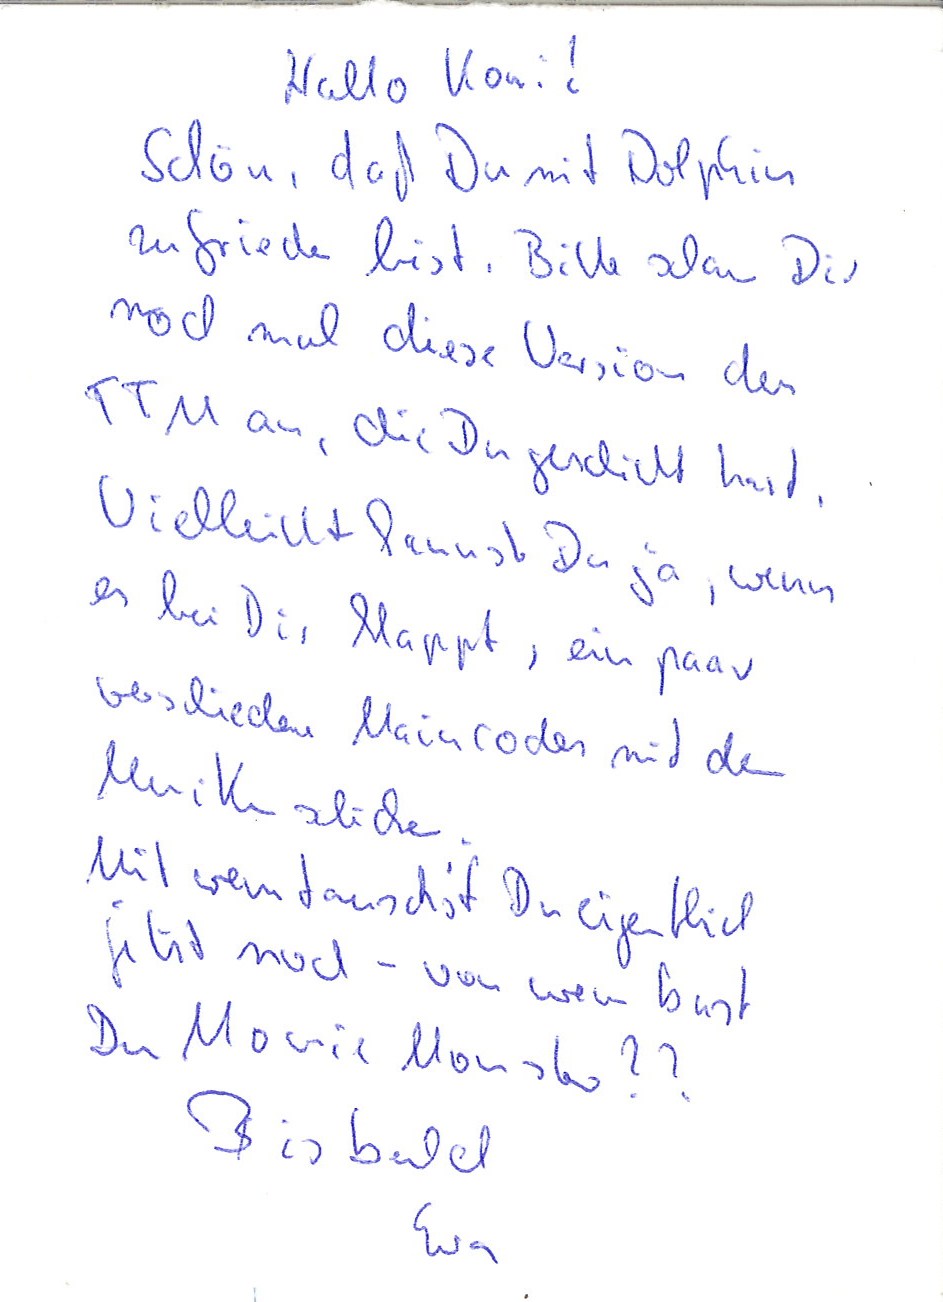 Hallo Koni!
Schön, daß Du mit Dolphin
zufrieden bist. Bitte schau Dir
noch mal diese Version des
TTM an, die Du geschickt hast.
Vielleicht kannst Du ja, wenn
es bei Dir klappt, ein paar
verschiedene Maincodes mit den
Musiken schicken.
Mit wem tauschst Du eigentlich
jetzt noch - von wem hast
Du Movie Monster??
Bis bald
Eva